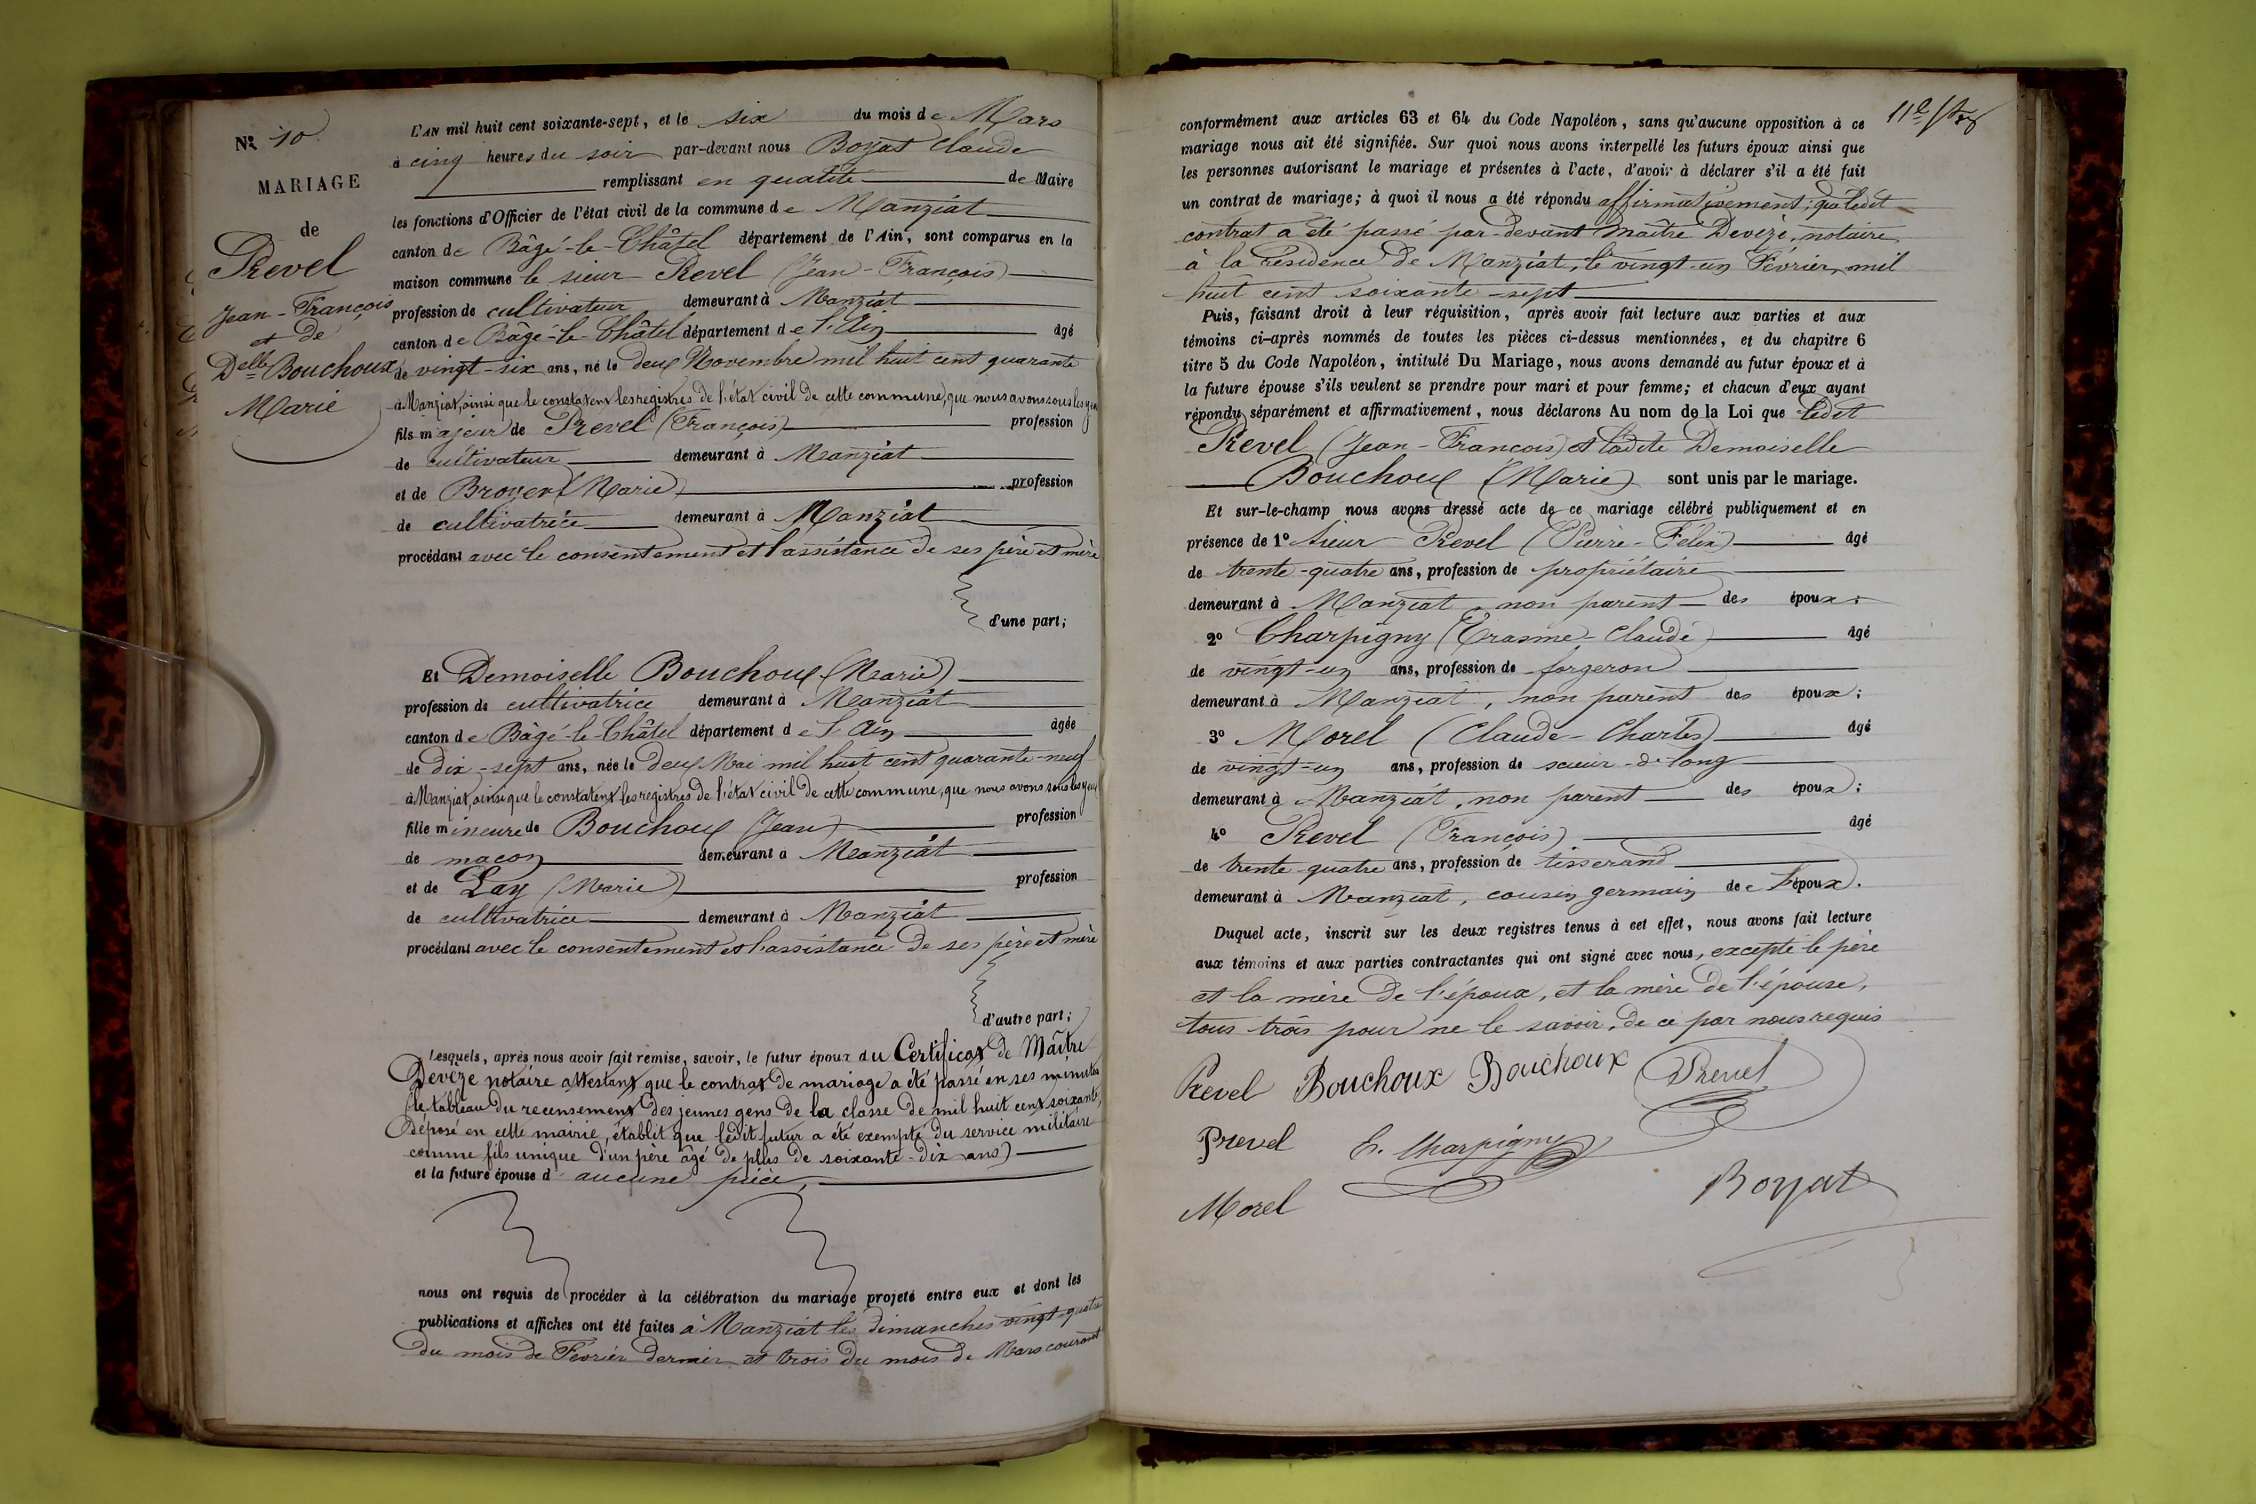 N° 10
MARIAGE
de
Prevel
Jean-François
et de
Delle Bouchoux
Marie
L'AN mil huit cent soixante-sept, et le six du mois de Mars
à cinq heures du soir par-devant nous Boyat Claude
remplissant en qualité de Maire
les fonctions d'Officier de l'état civil de la commune de Manziat
canton de Bâgé-le-Châtel département de l'Ain, sont comparus en la
maison commune le sieur Prevel (Jean-François)
profession de cultivateur demeurant à Manziat
canton de Bâgé-le-Châtel département de l'Ain âgé
de vingt-six ans, né le deux Novembre mil huit cent quarante
à Manziat, ainsi que le constatent les registres de l'état civil de cette commune, que nous avons sous les yeux
fils majeur de Prevel (François) profession
de cultivateur demeurant à Manziat
et de Broyer (Marie) profession
de cultivatrice demeurant à Manziat
procédant avec le consentement et l'assistance de ses père et mère
d'une part;
Et Demoiselle Bouchoux (Marie)
profession de cultivatrice demeurant à Manziat
canton de Bâgé-le-Châtel département de l'Ain âgée
de dix-sept ans, née le deux Mai mil huit cent quarante-neuf
à Manziat, ainsi que le constatent les registres de l'état civil de cette commune, que nous avons sous les yeux
fille mineure de Bouchoux (Jean) profession
de maçon demeurant à Manziat
et de Lay (Marie) profession
de cultivatrice demeurant à Manziat
procédant avec le consentement et l'assistance de ses père et mère
d'autre part;
Lesquels, après nous avoir fait remise, savoir, le futur époux du Certificat de Maître
Devèze notaire attestant que le contrat de mariage a été passé en ses minutes
(le tableau du recensement des jeunes gens de la classe de mil huit cent soixante,
déposé en cette mairie, établit que ledit futur a été exempté du service militaire
comme fils unique d'un père âgé de plus de soixante-dix ans)
et la future épouse d'aucune pièce,
nous ont requis de procéder à la célébration du mariage projeté entre eux et dont les
publications et affiches ont été faites à Manziat les dimanches vingt-quatre
du mois de Février dernier et trois du mois de Mars courant
11e
conformément aux articles 63 et 64 du Code Napoléon, sans qu'aucune opposition à ce
mariage nous ait été signifiée. Sur quoi nous avons interpellé les futurs époux ainsi que
les personnes autorisant le mariage et présentes à l'acte, d'avoir à déclarer s'il a été fait
un contrat de mariage; à quoi il nous a été répondu affirmativement; que ledit
contrat a été passé par-devant Maître Devèze, notaire
à la résidence de Manziat, le vingt-un Février, mil
huit cent soixante-sept
Puis, faisant droit à leur réquisition, après avoir fait lecture aux parties et aux
témoins ci-après nommés de toutes les pièces ci-dessus mentionnées, et du chapitre 6
titre 5 du Code Napoléon, intitulé Du Mariage, nous avons demandé au futur époux et à
la future épouse s'ils veulent se prendre pour mari et pour femme; et chacun d'eux ayant
répondu séparément et affirmativement, nous déclarons Au nom de la Loi que ledit
Prevel (Jean-François) et ladite Demoiselle
Bouchoux (Marie) sont unis par le mariage.
Et sur-le-champ nous avons dressé acte de ce mariage célébré publiquement et en
présence de 1° sieur Prevel (Pierre-Félix) âgé
de trente-quatre ans, profession de propriétaire
demeurant à Manziat, non parent des époux;
2° Charpigny (Erasme-Claude) âgé
de vingt-un ans, profession de forgeron
demeurant à Manziat, non parent des époux;
3° Morel (Claude-Charles) âgé
de vingt-un ans, profession de scieur-de-long
demeurant à Manziat, non parent des époux;
4° Prevel (François) âgé
de trente-quatre ans, profession de tisserand
demeurant à Manziat, cousin germain de l'époux.
Duquel acte, inscrit sur les deux registres tenus à cet effet, nous avons fait lecture
aux témoins et aux parties contractantes qui ont signé avec nous, excepté le père
et la mère de l'époux, et la mère de l'épouse,
tous trois pour ne le savoir, de ce par nous requis
Prevel Bouchoux Bouchoux Prevel
Prevel E. Charpigny
Morel Boyat